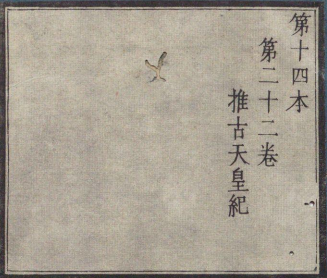 第十四本
第二十二卷
推古天皇紀